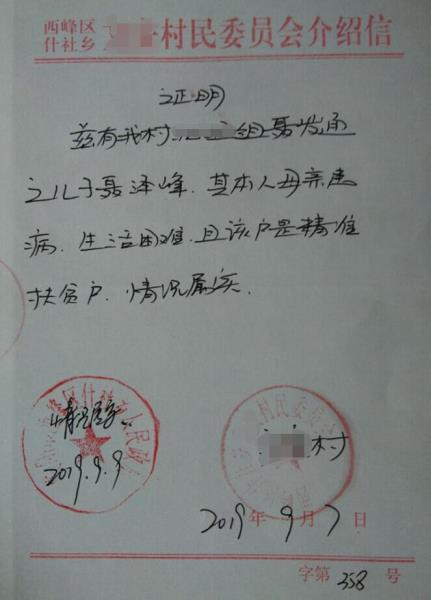 西峰区
什社乡
村民委员会介绍信
证明
兹有我村组聂发
之儿子聂泽峰，其本人母亲患
病，生活困难，且该户是精准
扶贫户，情况属实。
情况属实
2019.9.9
村
2019年9月7日
字第358号